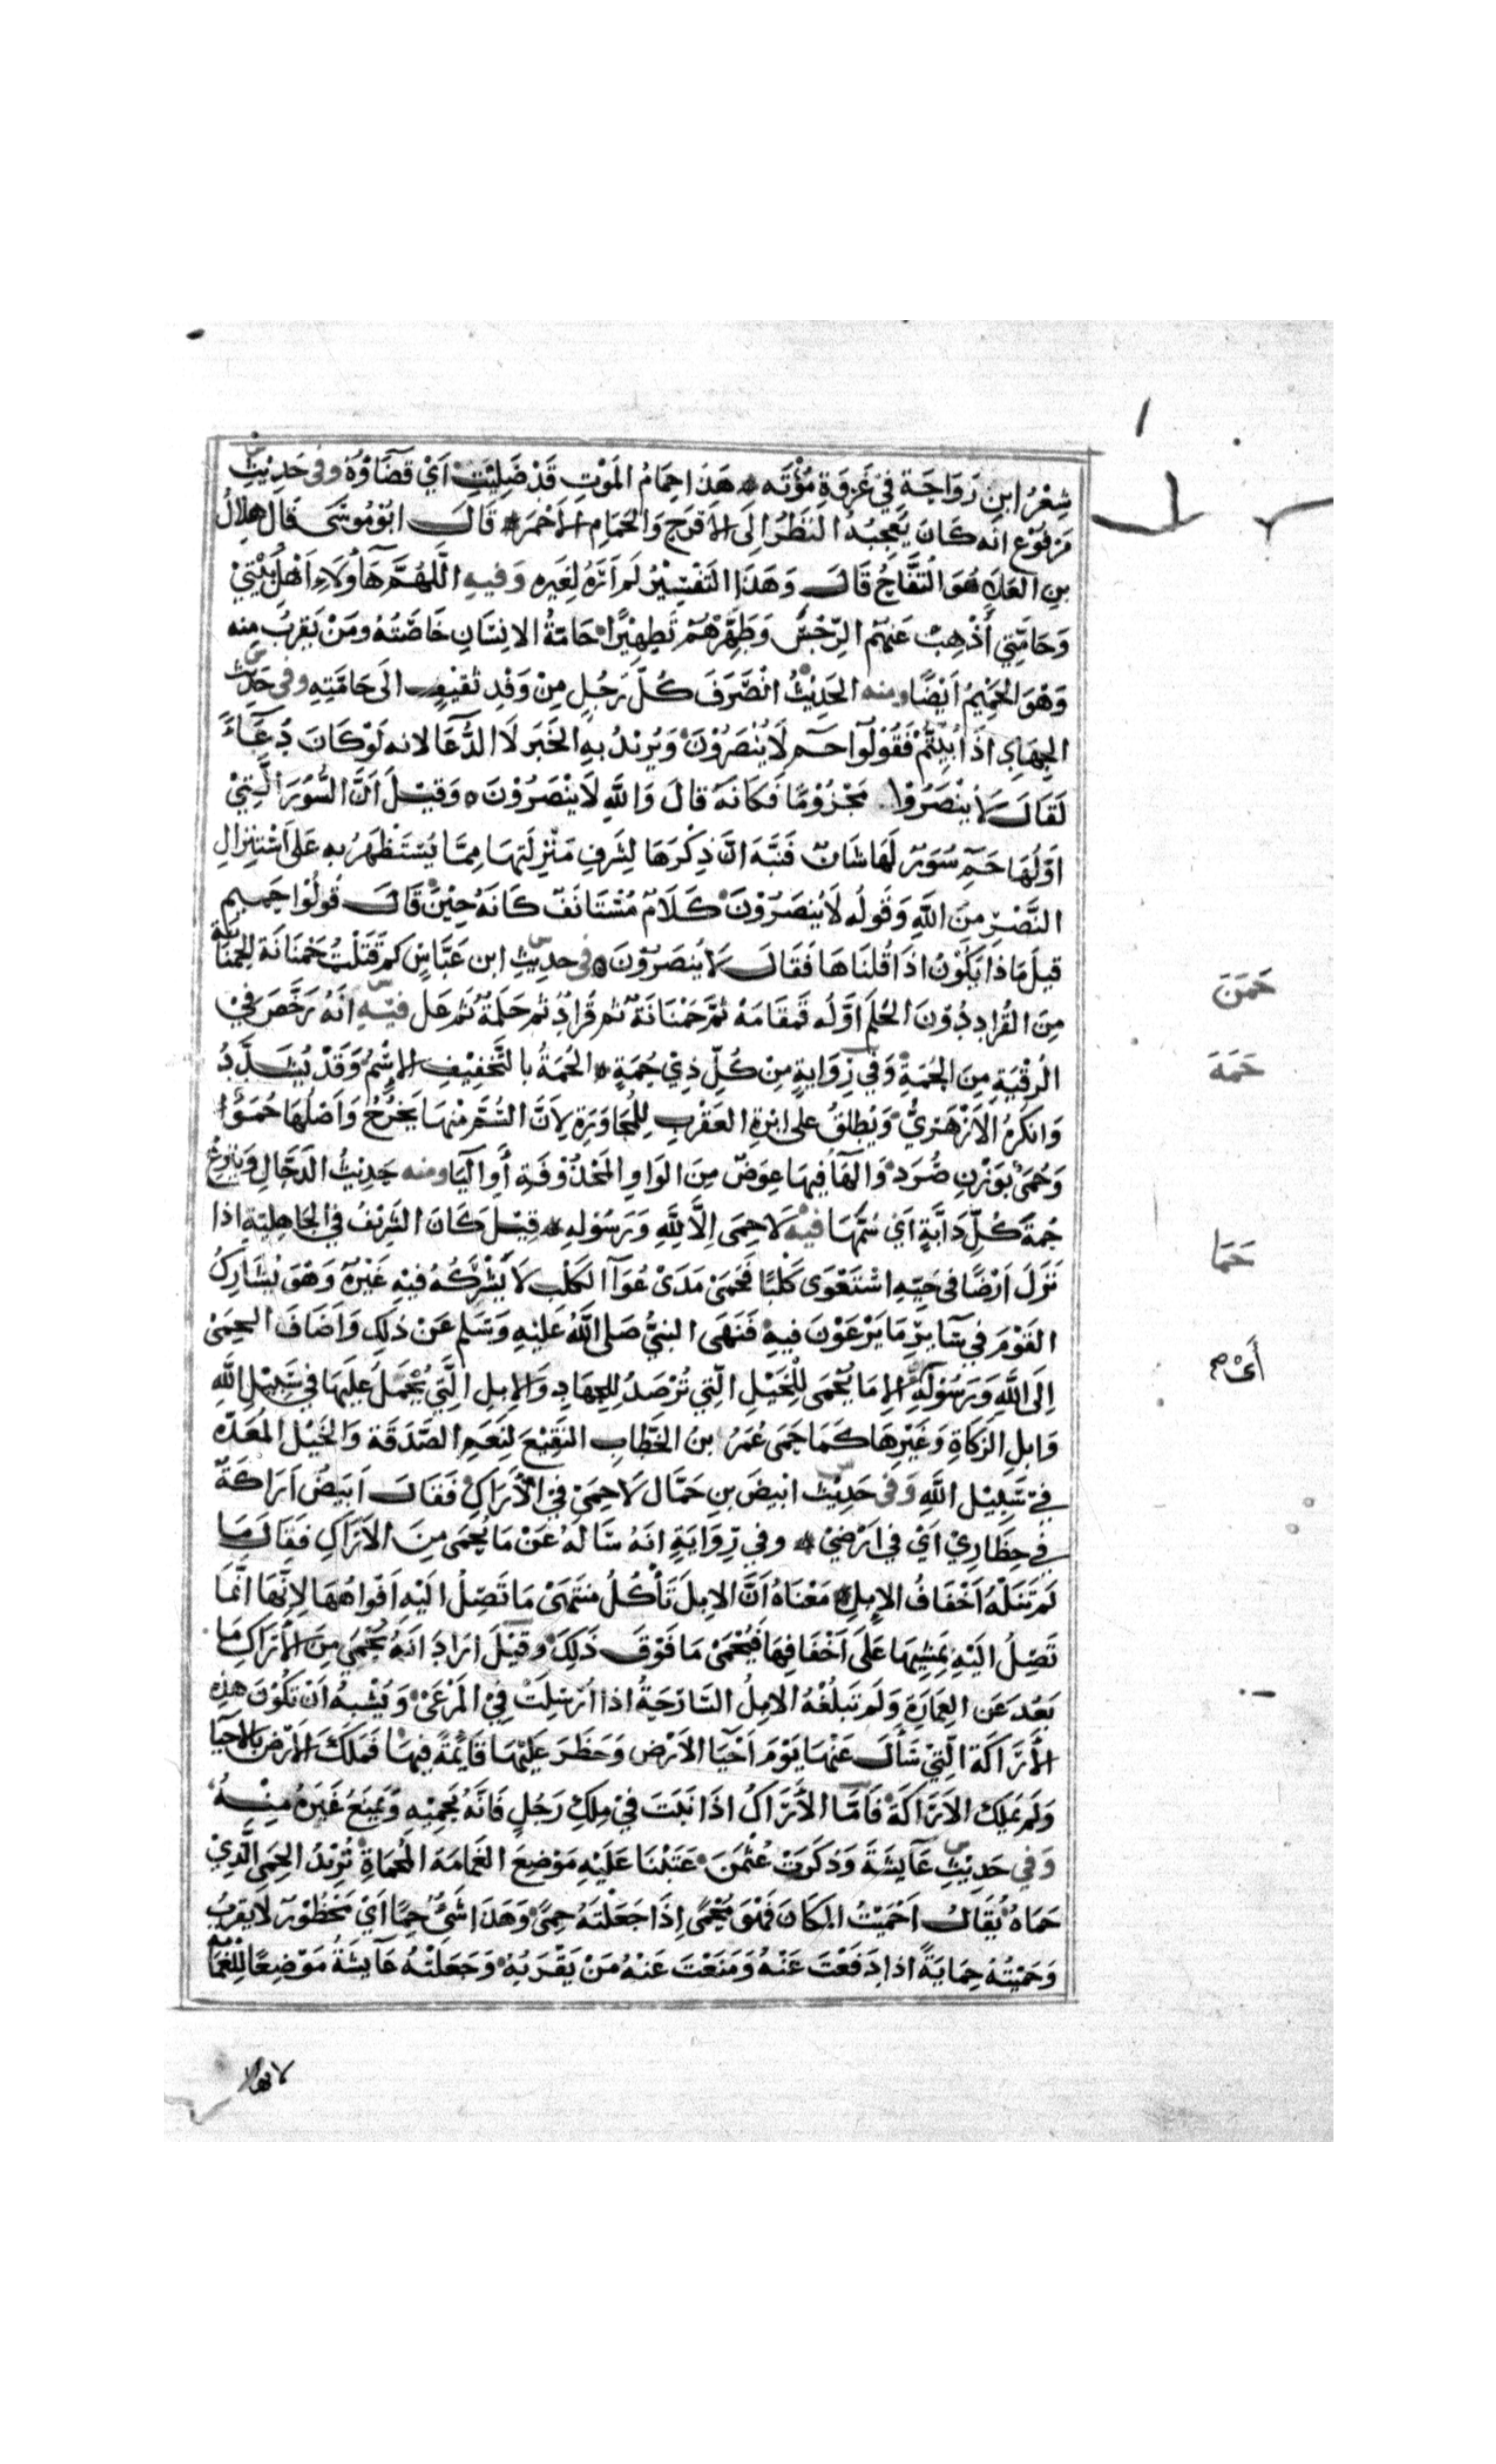 شِعْرُ ابنِ رَوَاحَة فيْ غَزوَةِ مُؤْتَه هَذَا حِمَامُ المَوْتِ قَدْ صَلِيْتِ اَيْ قَضَآؤُهُ وفى حَدِيْثٍ
مَرْفُوْع انه كَانَ يُعْجِبُهُ النَظَرُ اِلَى الاُتْرُجِ وَالحَمَامِ الاَحْمَرْ قَالَ ابُوْ مُوسَى قال هِلالُ
بن العَلَاءِ هُوَ التُفَّاحُ قَالَ وَهَذَا التَفْسِيْرُ لَم اَرَهُ لِغَيرِه وَفيهِ اللَّهُمَّ هَآوُلَاءِ اَهْلُ بَيْتِيْ
وَحَامَّتِي أَذْهِبْ عَنهُم الرِّجْسَ وَطَهِّرْهُمْ تَطهِيْرًا حَامَّةُ الانِسَانِ خَاصَّتُهُ ومَنْ يَقرُبُ مِنه
وَهْوَ الحَمِيْمُ اَيْضًا ومنه الحَدِيْثُ انْصَرَفَ كُلّ رَجُلٍ مِنْ وَفدِ ثَقيْفٍ الَى حَامَّتِهِ وفى حَدِيْثِ
الجِهَادِ اذَا بُيِّتُّمْ فَقُوْلُوْا حم لَا يُنْصَرُوْنَ وَيُرِيْدُ بهِ الخَبَرَ لَا الدُّعَا لانه لَوْ كَانَ دُعَآءً
لَقَالَ لَا يُنْصَرُوا مَجْزُوْمًا فَكَانَهُ قالَ وَاللهِ لَا يُنْصَرُوْنَ وَقيْلَ اَنَّ السُّوَرَ الَّتِيْ
اَوّلُهَا حم سُوَرٌ لَهَا شَانٌ فَنَبَّهَ انَّ ذِكْرَهَا لِشَرفِ مَنْزِلَتِهَا مِمَّا يُسْتَظهَرُ بِهِ عَلَى اسْتِنْزَالِ
النَصْرِ مِنَ اللهِ وَقَولُه لَا يُنصَرُوْنَ كَلَامٌ مُسْتَانَفٌ كَانَهُ حِيْنَ قَالَ قُولُوْا حم
قيلَ مَاذَا يَكُوْنُ اذَا قُلنَاهَا فَقَالَ لَا يُنصَرُوْنَ فى حديثِ ابن عَبَّاسٍ كم قَتَلْتُ حَمْنَانَة الحَمنَانَة
مِنَ القُرادِ دُوْنَ الحَلَمِ اَوّلُه قَمقَامَة ثمَّ حَمْنَانَة ثم قُرَادٌ ثم حَلَمَة ثم عَل فيْهِ انَهُ رَخَّصَ فِيْ
الرُقْيَةِ مِنَ الحُمَةِ وَفي رِوَايةٍ مِنْ كُلِّ ذِيْ حُمَةٍ الحُمَةُ بالتَّخفِيْفِ السَّمُّ وَقَدْ يُشَدَّدُ
وَانكَرهُ الاَزْهَرِيُّ وَيُطلَقُ على ابْرةِ العَقْربِ لِلْمُجَاوَرَةِ لِاَنَّ السَّمَّ مِنْهَا يَخْرُجُ وَاَصْلُهَا حُمَوٌ
وَحُمَيٌ بِوَزْنِ صُرَدٍ وَالهَآ فيهَا عِوَضٌ مِنَ الوَاوِ المَحْذُوْفَةِ أَوِ اليَا ومنه حَدِيْثُ الدَجَّالِ وَيُنْزَعُ
حُمَةُ كُلِّ دَابَّةٍ اَيْ سَمُّهَا فيْهِ لَا حِمَى اِلَّا لِلّهِ وَرَسُوْلِهِ قِيْلَ كَانَ الشَرِيْفُ فِي الجَاهِلِيَةِ اذا
نَزَلَ اَرْضًا فى حَيِّهِ اسْتَعْوَى كَلْبًا فَحَمَىْ مَدَىْ عُوَآ الكَلْبِ لَا يَشْرَكُهُ فيْهِ غَيْرُهُ وَهْوَ يُشَارِكُ
القَوْمَ في سَآيرِ مَا يَرْعَوْنَ فيهِ فَنَهَى النبيُّ صَلى اللهُ عَلَيْهِ وَسَلم عَنْ ذَلِكَ وَاَضَافَ الحِمَىْ
اِلَى اللهِ وَرَسُوْلِهِ الا مَا يُحْمَى لِلْخَيْلِ الّتِي تُرْصَدُ لِلْجِهَادِ وَالاِبِلِ الَّتِي يُحْمَلُ عَلَيهَا فِي سَبِيْلِ اللهِ
وَابلِ الزَكَاةِ وَغَيْرِهَا كَمَا حَمَى عُمَرُ بنُ الخَطَّابِ النَقِيْعَ لِنَعَمِ الصَّدَقَة وَالخَيْلِ المُعَدَّه
فِيْ سَبِيْلِ اللهِ وَفى حَدِيْثِ ابْيضَ بنِ حَمَّال لَا حِمَى فِيْ الاَرَاكِ فَقَالَ اَبيَضُ اَرَاكَةٌ
في حِظَارِيْ اَيْ في ارْضِيْ وفي رِوَايَةٍ انَهُ سَالَهُ عَنْ مَا يُحْمَى مِنَ الاَرَاكِ فَقَالَ مَا
لم تَنَلْهُ اَخْفَافُ الاِبِلِ مَعْنَاهُ اَنَّ الابِلَ تَأْكُلُ مُنتَهَىْ مَا تَصِلُ الَيْهِ اَفْوَاهُهَا لاِنَّهَا انَّمَا
تَصِلُ الَيْهِ بِمَشِيِهَا عَلَى اَخْفَافِهَا فَيُحْمَىْ مَا فَوْقَ ذَلِكَ وقِيْلَ ارَادَ انَهُ يُحْمَى مِنَ الاَرَاكِ مَا
بَعُدَ عَنِ العِمَارَةِ وَلَم تَبلُغْهُ الابِلُ السَارِحَةُ اذا اُرْسِلَتْ فِيْ المَرْعَىْ وَيُشْبِهُ اَنْ تَكُوْنَ هذِه
الأَرَاكَة الَّتِيْ سَأَلَ عَنْهَا يَوْمَ اَحْيَا الاَرْض وَحَظَرَ عَلَيْهَا قَايمَةً فِيهَا فَمَلَكَ الاَرْضَ بالاحيَا
وَلَم يَملِك الاَرَاكَة فَامَّا الأَرَاكُ اذَا نَبَتَ فيْ مِلكِ رَجُلٍ فَانَّهُ يَحمِيْهِ وَيَمنَعُ غَيرَهُ مِنْهُ
وَفي حَدِيْثِ عَآيشَةَ وَذكَرَتْ عُثْمنَ عَتَبْنَا عَلَيْهِ مَوْضِعَ الغَمَامَة المُحمَاةِ تُرِيْدُ الحِمَى الَّذِيْ
حَمَاهُ يُقَالُ اَحْمَيْتُ المَكَانَ فَهْوَ مُحْمًى اِذَا جَعَلْتَهُ حِمًى وَهَذَا شَىْءٌ حِمًا اَيْ مَحْظُوْرٌ لَا يقْرَبُ
وَحَمَيْتُهُ حِمَايَةً اذا دَفَعْتَ عَنْهُ وَمَنَعْتَ عَنْهُ مَنْ يَقْرَبُهُ وَجَعَلَتْهُ عَآيشَةُ مَوْضِعًا لِلْغَمَا
حَمَنَ
حَمَهَ
حَمَا